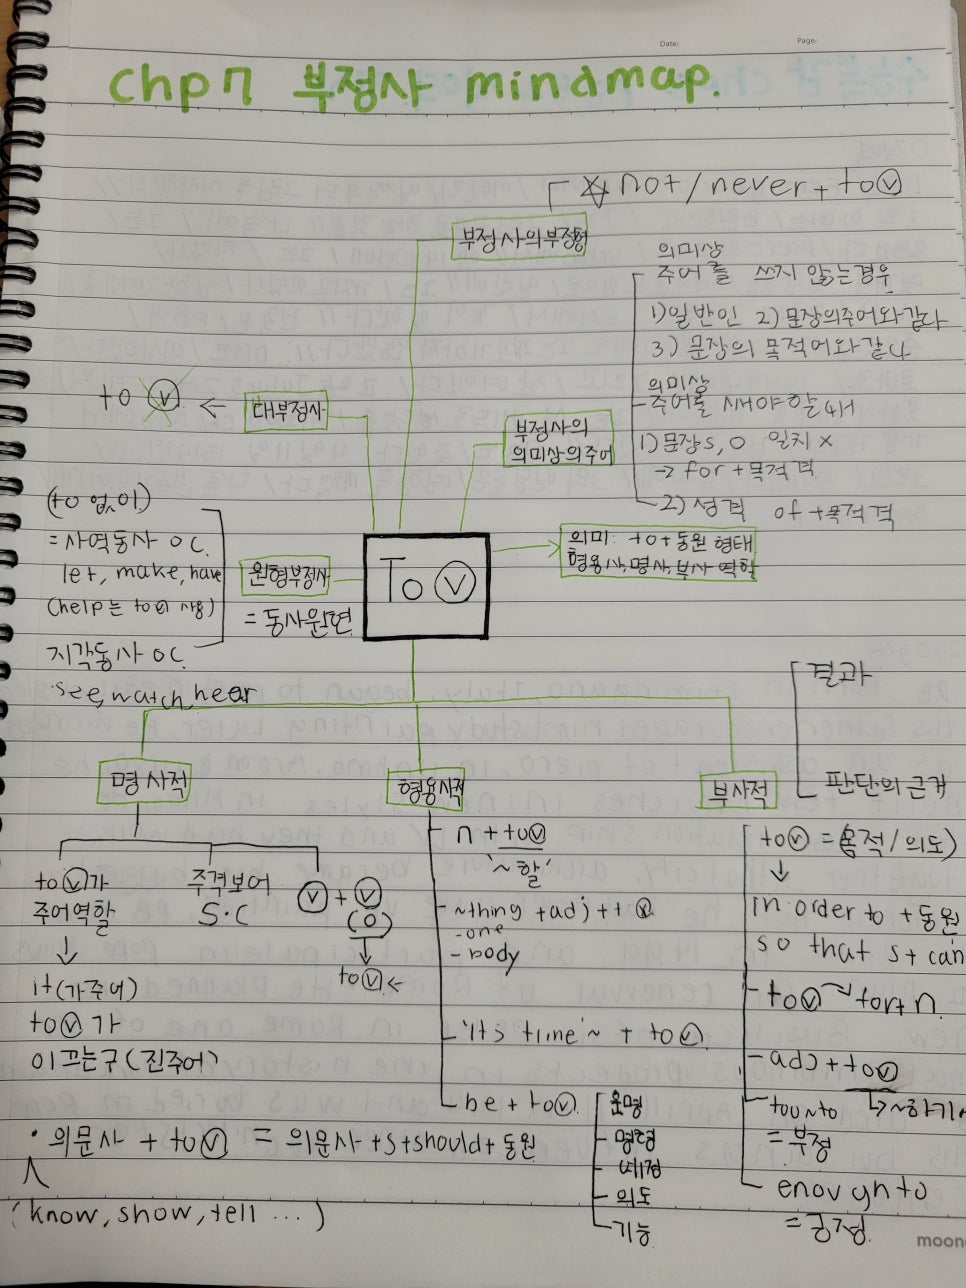 Date/
Page/
chp 7 부정사 mindmap.
☆ not/never + to ⓥ
부정사의부정형
의미상
주어를 쓰지 않는경우
1) 일반인 2) 문장의주어와같다
3) 문장의 목적어와 같다
의미상
주어를 써야할때
1) 문장 S, O 일치 X
→ for + 목적격
2) 성격 of + 목적격
to ⓥ ← 대부정사
부정사의
의미상의주어
(to 없이)
= 사역동사 O.C.
let, make, have
(help는 to 사용)
지각동사 O.C.
see, watch, hear
원형부정사
= 동사원현
To ⓥ
의미: to + 동원 형태
형용사, 명사, 부사 역할
명사적
형용사적
부사적
결과
판단의 근거
to ⓥ가
주어역할
↓
it (가주어)
to ⓥ 가
이끄는구 (진주어)
주격보어
S·C
ⓥ + ⓥ
(O)
↓
to ⓥ ←
n + to ⓥ
'~할'
~thing + adj + t ⓥ
-one
-body
'It's time' ~ + to ⓥ
be + to ⓥ
운명
명령
예정
의도
가능
to ⓥ = 목적/의도)
↓
in order to + 동원
so that s + can
to ⓥ → for + n
adj + to ⓥ
↳ ~하기에
too ~ to
= 부정
enough to
= 긍정
· 의문사 + to ⓥ = 의문사 + s + should + 동원
(know, show, tell ...)
moon